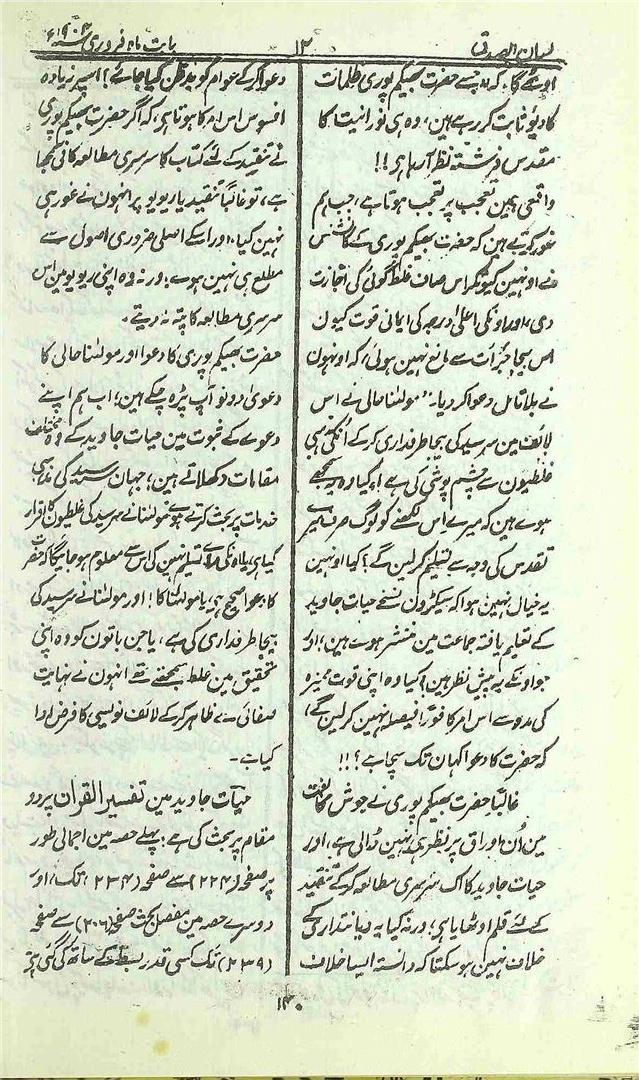 لسان الصدق ۱۲ بابت ماہ فروری سنہ ۱۹۰۴ء
اوٹھے گا، کہ جسے حضرت بھیکم پوری ظلمات
کا دیو ثابت کر رہے ہین، وہ ہی نورانیت کا
مقدس فرشتہ نظر آ رہا ہی!!
واقعی ہمین تعجب پر تعجب ہوتا ہے، جب ہم
غور کرتے ہین کہ حضرت بھیکم پوری کے کانشنس
نے اونہین کیونکر اس صاف غلط گوئی کی اجازت
دی، اور اونکی اعلیٰ درجہ کی ایمانی قوت کیون
اس بیجا جرأت سے مانع نہین ہوئی، کہ اونہون
نے بلا تامل دعوا کر دیا۔ "مولٰنا حالی نے اس
لائف مین سرسید کی بیجا طرفداری کر کے اُنکی مذہبی
غلطیون سے چشم پوشی کی ہے" کیا وہ یہ سمجھے
ہوے ہین کہ میرے اس لکھنے کو لوگ صرف میرے
تقدس کی وجہ سے تسلیم کر لین گے؟ کیا اونہین
یہ خیال نہین ہوا کہ سیکڑون نسخے حیات جاوید
کے تعلیم یافتہ جماعت مین منتشر ہو رہے ہین، اور
جو اونکے پیش نظر ہین؟ کیا وہ اپنی قوت ممیزہ
کی مدد سے اس امر کا فوراً فیصلہ نہین کر لین گے،
کہ حضرت کا دعوا کہان تک سچا ہے؟!!
غالباً حضرت بھیکم پوری نے جوش مخالفت
مین اُن اوراق پر نظر ہی نہین ڈالی ہے، اور
حیات جاوید کا اک سرسری مطالعہ کر کے تنقید
کے لئے قلم اوٹھایا ہی؛ ورنہ کیا یہ دیانتداری کے
خلاف نہین ہو سکتا کہ دانستہ ایسا خلاف
دعوا کر کے عوام کو بد ظن کیا جائے؟ اسپر زیادہ
افسوس اس امر کا ہوتا ہی، کہ اگر حضرت بھیکم پوری
نے تنقید کے لئے کتاب کا سرسری مطالعہ کافی سمجھا
ہے، تو غالباً تنقید یا ریویو پر انہون نے غور ہی
نہین کیا۔ اور اسکے اصلی ضروری اصول سے
مطلع ہی نہین ہوے؛ ورنہ وہ اپنی ریویو مین اس
سرسری مطالعہ کا پتہ نہ دیتے۔
حضرت بھیکم پوری کا دعوا اور مولٰنا حالی کا
دعویٰ دونو آپ پڑہ چکے ہین؛ اب ہم اپنے
دعوے کے ثبوت مین حیات جاوید کے وہ مختلف
مقامات دکھلاتے ہین؛ جہان سرسید کی مذہبی
خدمات پر بحث کرتے ہوے مولٰنا نے سرسید کی غلطیون کا اقرار
کیا ہی، یا انکی راے تسلیم نہین کی اس سے معلوم ہو جائیگا کہ حضرت
کا دعوا صحیح ہی یا مولٰنا کا! اور مولٰنا نے سرسید کی
بیجا طرفداری کی ہے، یا جن باتون کو وہ اپنی
تحقیق مین غلط سمجھتے تھے انہون نے نہایت
صفائی سے ظاہر کر کے لائف نویسی کا فرض ادا
کیا ہے۔
حیات جاوید مین تفسیر القرآن پر دو
مقام پر بحث کی ہے؛ پہلے حصہ مین اجمالی طور
پر صفحہ (۲۲۴) سے صفحہ (۲۳۴) تک، اور
دوسرے حصہ مین مفصل بحث صفحہ (۲۰۶) سے صفحہ
(۲۳۹) تک کسی قدر بسط کے ساتھ کی گئی ہی
۱۴۰